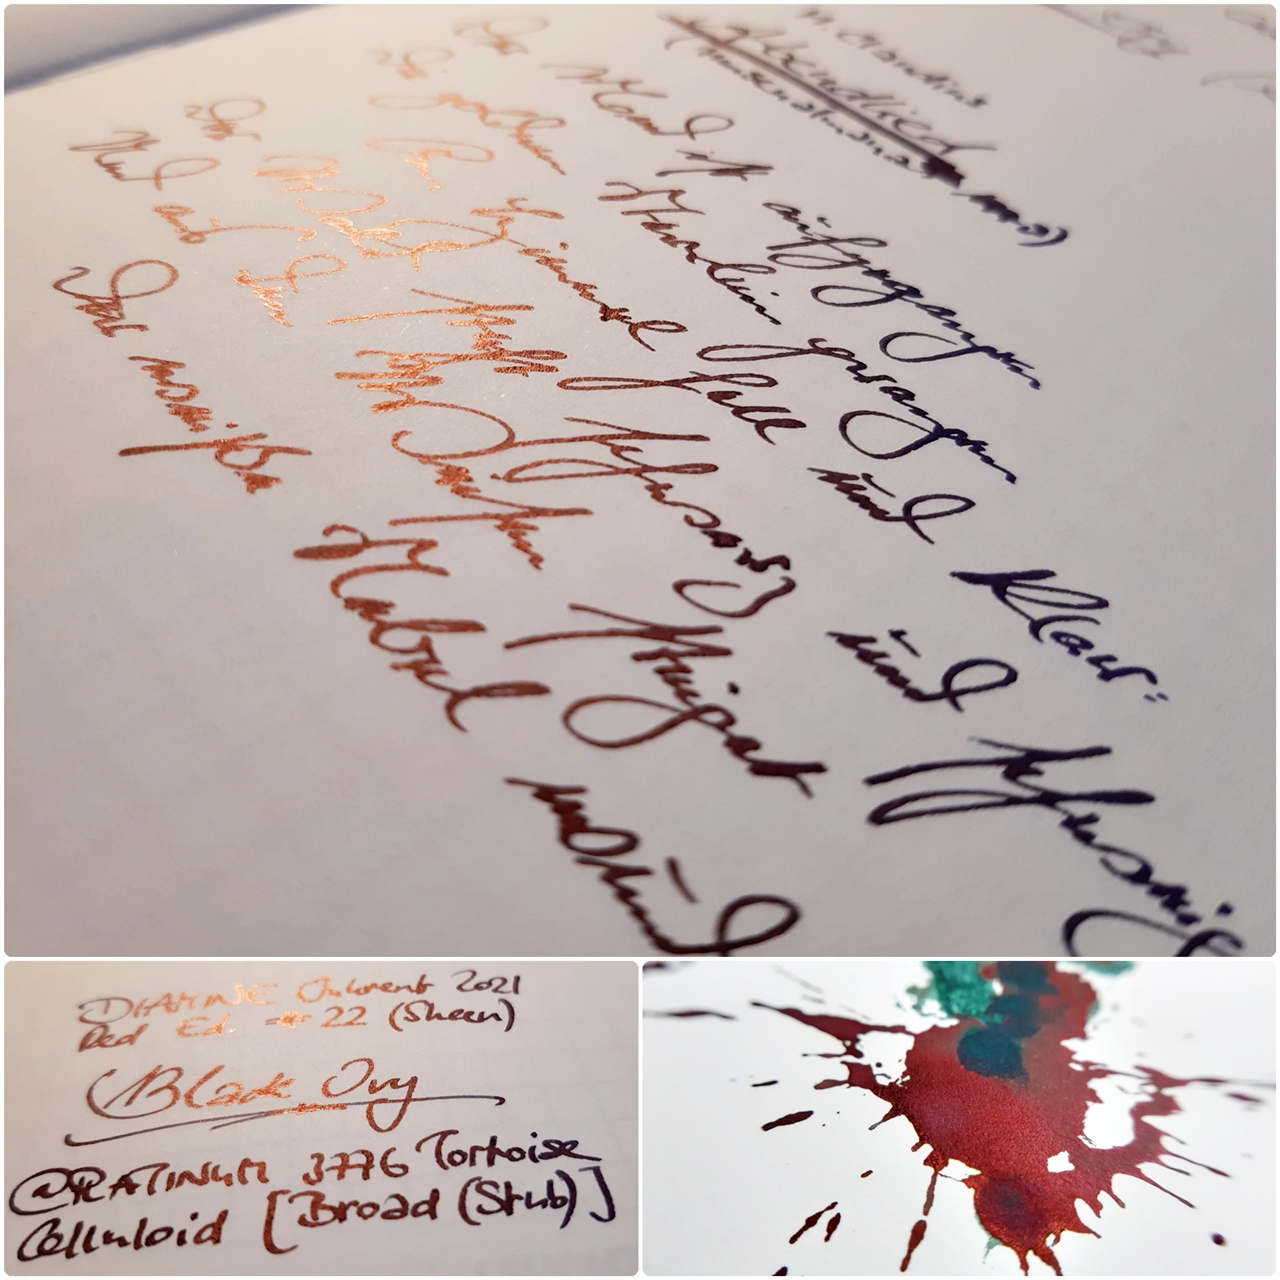 M. Claudius
Abendlied
Der Mond ist aufgegangen
Die Sternlein prangen
Am Himmel hell und klar:
Der Wald steht schwarz und schweig
Und aus den Wiesen steiget
Der weiße Nebel wund
DIAMINE Inkvent 2021
Red Ed. #22 (Sheen)
Black Ivy
@PLATINUM 3776 Tortoise
Celluloid [Broad (Stub)]